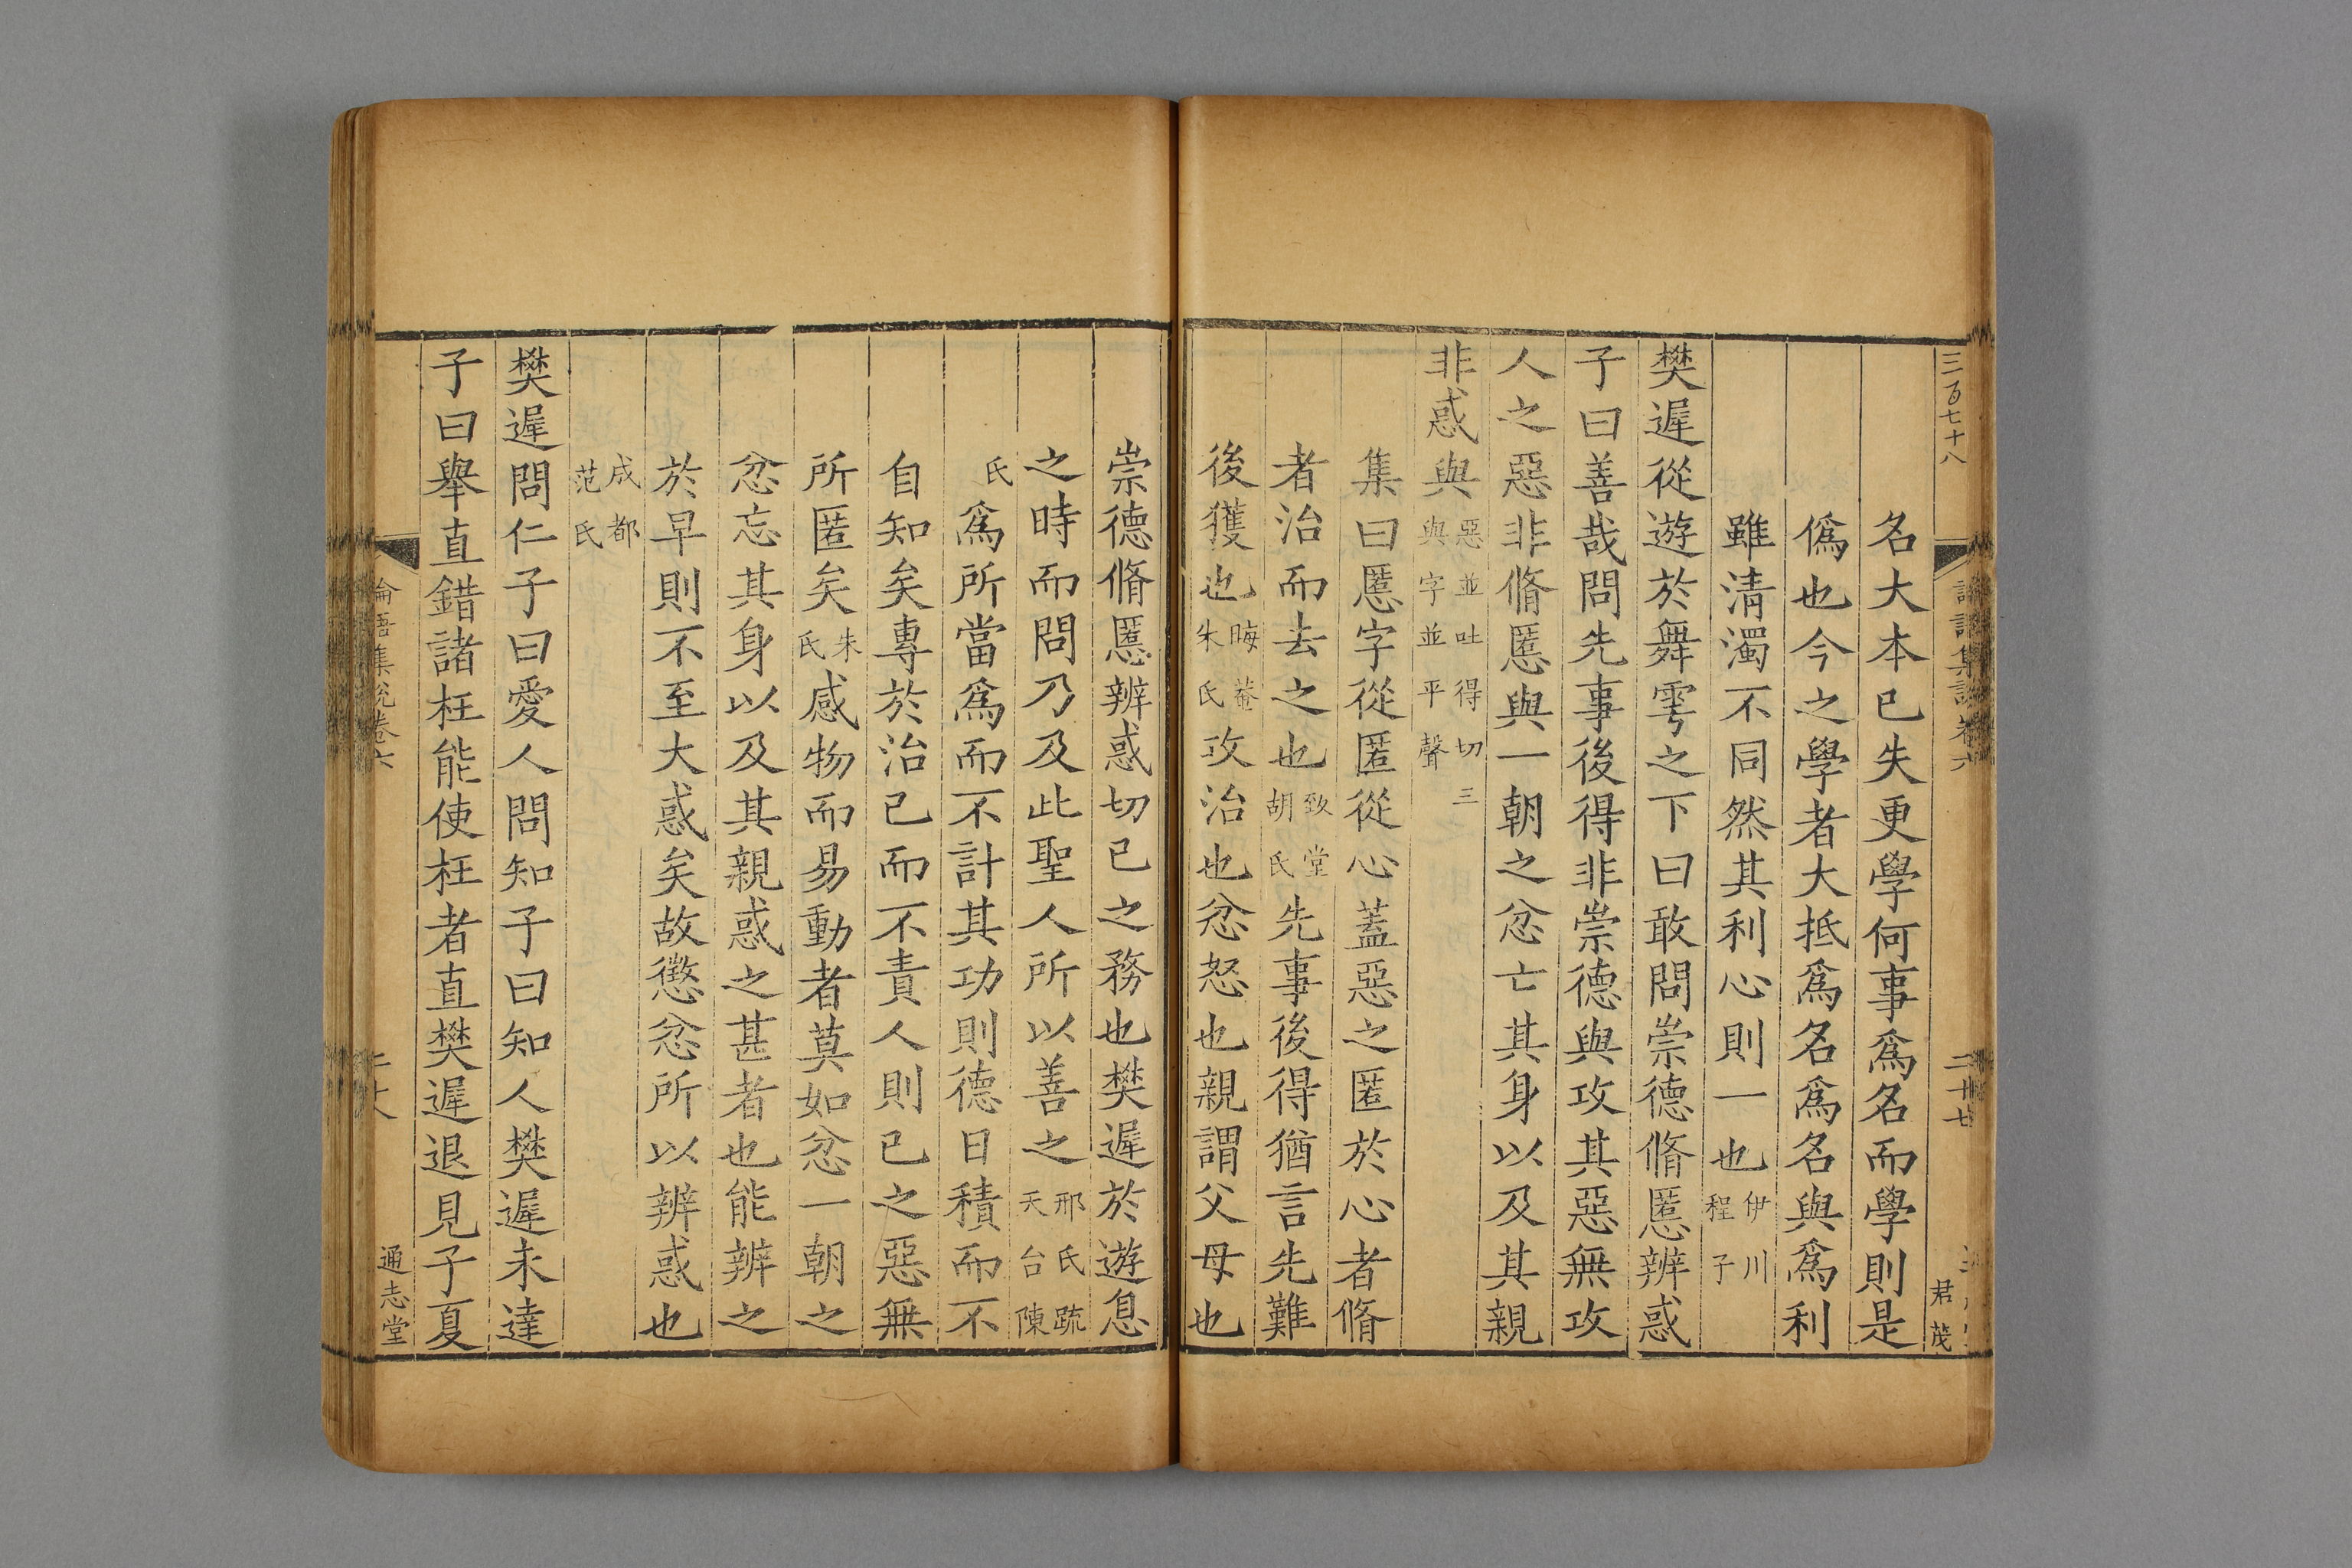 三百七十八
君茂
名大本已失更學何事爲名而學則是
僞也今之學者大抵爲名爲名與爲利
雖清濁不同然其利心則一也伊川程子
樊遲從遊於舞雩之下曰敢問崇德脩慝辨惑
子曰善哉問先事後得非崇德與攻其惡無攻
人之惡非脩慝與一朝之忿亡其身以及其親
非惑與惡並吐得切三與字並平聲
集曰慝字從匿從心蓋惡之匿於心者脩
者治而去之也致堂胡氏先事後得猶言先難
後獲也晦菴朱氏攻治也忿怒也親謂父母也
崇德脩慝辨惑切己之務也樊遲於遊息
之時而問乃及此聖人所以善之邢氏疏天台陳
氏爲所當爲而不計其功則德日積而不
自知矣專於治己而不責人則己之惡無
所匿矣朱氏感物而易動者莫如忿一朝之
忿忘其身以及其親惑之甚者也能辨之
於早則不至大惑矣故懲忿所以辨惑也
成都范氏
樊遲問仁子曰愛人問知子曰知人樊遲未達
子曰舉直錯諸枉能使枉者直樊遲退見子夏
論語集說卷六
通志堂